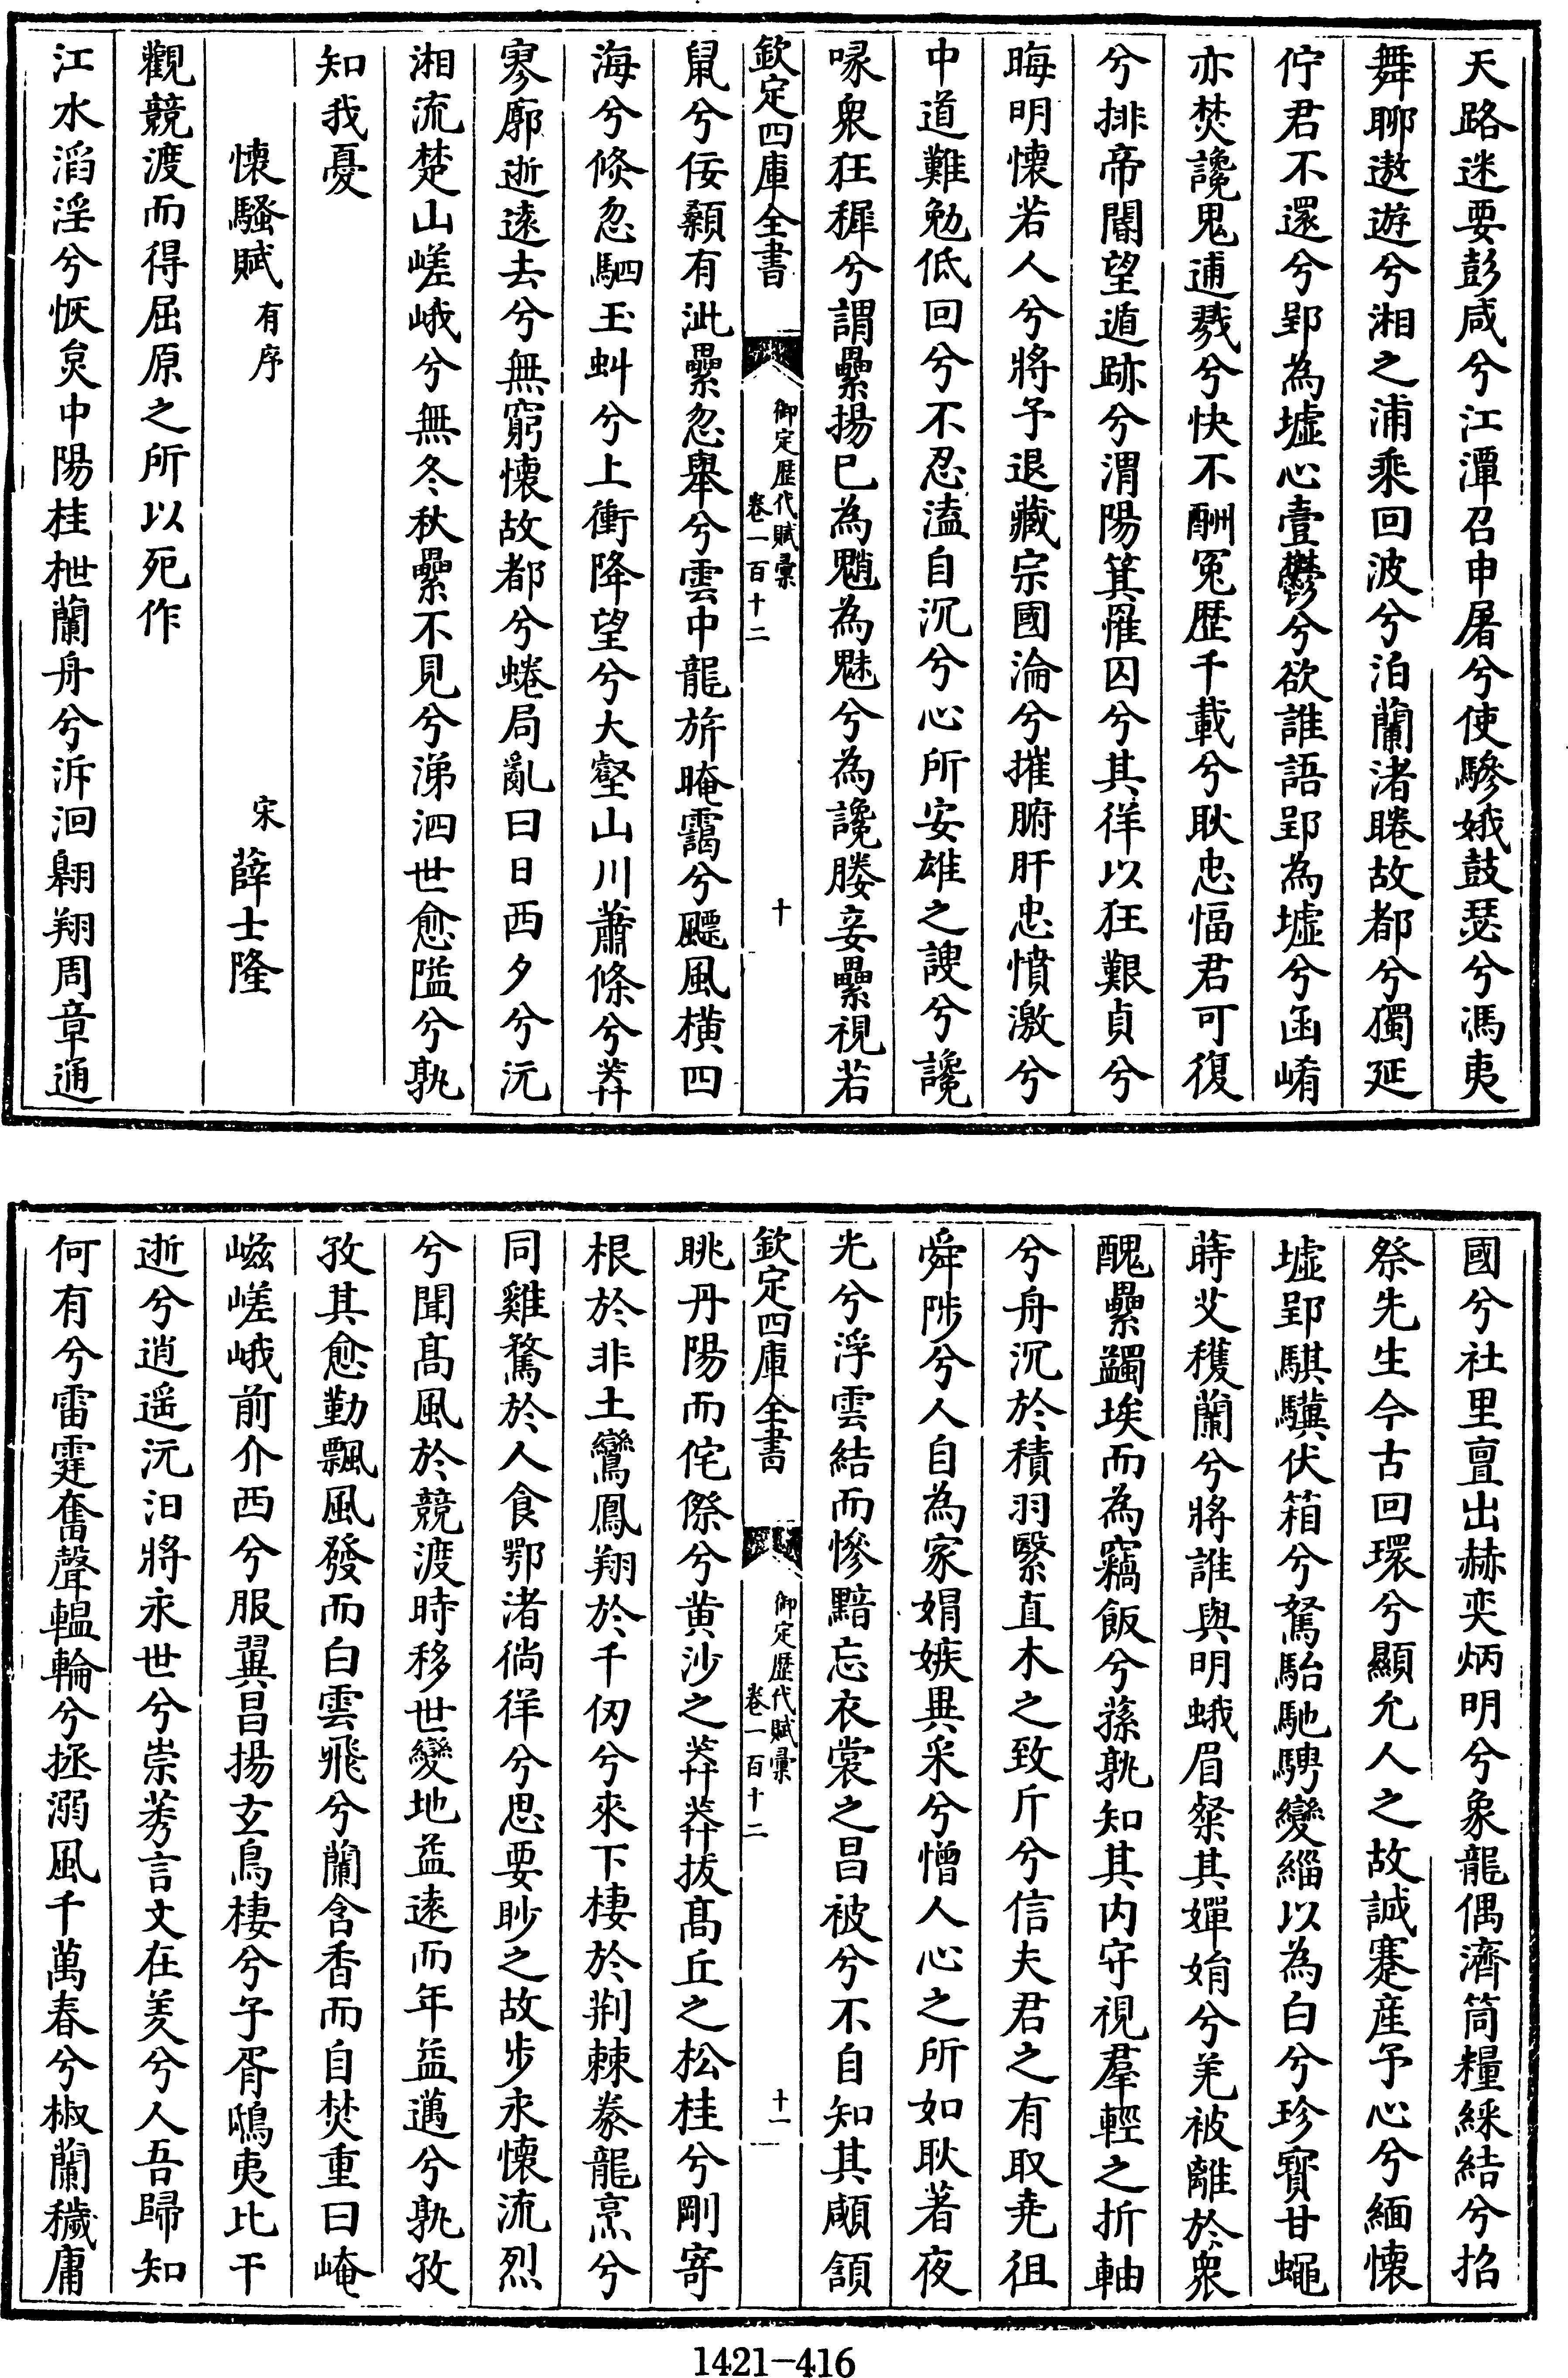 天路迷要彭咸兮江潭召申屠兮使驂娥鼓瑟兮馮夷
舞聊遨遊兮湘之浦乘回波兮泊蘭渚睠故都兮獨延
佇君不還兮郢為墟心壹鬱兮欲誰語郢為墟兮函崤
亦焚讒鬼逋戮兮快不酬冤歴千載兮耿忠愊君可復
兮排帝閽望遁跡兮渭陽箕罹囚兮其徉以狂艱貞兮
晦明懷若人兮將予退藏宗國淪兮摧腑肝忠憤激兮
中道難勉低回兮不忍溘自沉兮心所安雄之謏兮讒
喙衆狂穉兮謂纍揚已為魈為魅兮為讒媵妾纍視若
欽定四庫全書
御定歴代賦彙
卷一百十二
十
鼠兮佞顙有泚纍忽舉兮雲中龍旂晻靄兮飃風橫四
海兮倐忽駟玉虯兮上衝降望兮大壑山川蕭條兮莽
寥廓逝遠去兮無窮懷故都兮蜷局亂曰日西夕兮沅
湘流楚山嵯峨兮無冬秋纍不見兮涕泗世愈隘兮孰
知我憂
懷騷賦有序
宋薛士隆
觀競渡而得屈原之所以死作
江水滔淫兮恢炱中陽桂枻蘭舟兮泝洄翺翔周章通
國兮社里亶出赫奕炳明兮象龍偶濟筒糧綵結兮掐
祭先生今古回環兮顯允人之故誠蹇産予心兮緬懷
墟郢騏驥伏箱兮駑駘馳騁變緇以為白兮珍寳甘蠅
蒔艾穫蘭兮將誰與明蛾眉粲其嬋娟兮羌被離於衆
醜纍蠲埃而為竊飯兮蓀孰知其内守視羣輕之折軸
兮舟沉於積羽緊直木之致斤兮信夫君之有取堯徂
舜陟兮人自為家娟嫉異采兮憎人心之所如耿著夜
光兮浮雲結而慘黯忘衣裳之昌被兮不自知其顑頷
欽定四庫全書
御定歴代賦彙
卷一百十二
十一
眺丹陽而侘傺兮黄沙之莽莽拔髙丘之松桂兮剛寄
根於非土鸞鳳翔於千仞兮來下棲於荆棘豢龍烹兮
同雞鶩於人食鄂渚徜徉兮思要眇之故步永懷流烈
兮聞髙風於競渡時移世變地益逺而年益邁兮孰孜
孜其愈勤飄風發而白雲飛兮蘭含香而自焚重曰崦
嵫嵯峨前介西兮服翼昌揚玄鳥棲兮子胥鴟夷比干
逝兮逍遥沅汨將永世兮崇蒡言文在羑兮人吾歸知
何有兮雷霆奮聲轀輪兮拯溺風千萬春兮椒蘭穢庸
1421-416